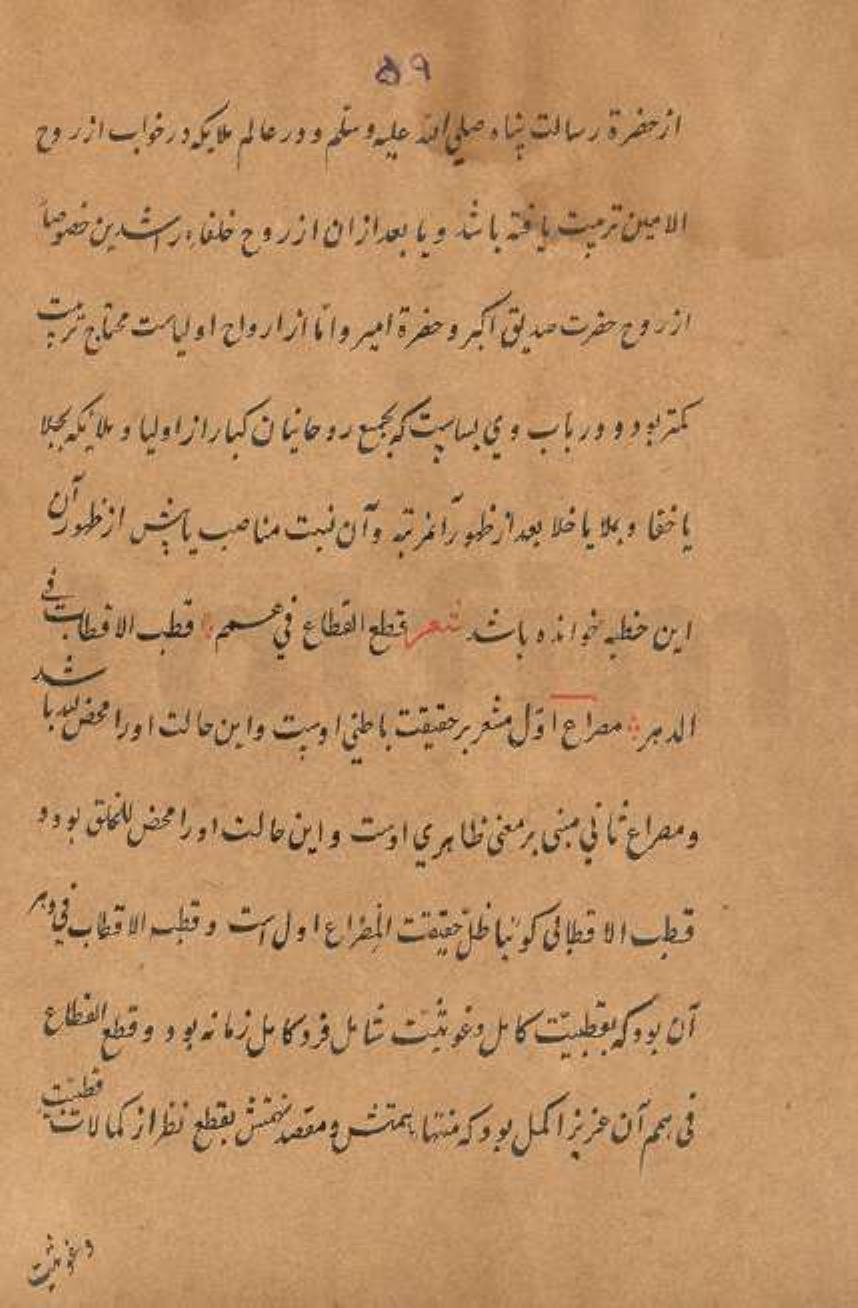 ۵۹
از حضرة رسالت پناه صلي الله عليه وسلم و در عالم ملایکه در خواب از روح
الامین تربیت یافته باشد و یا بعد از ان از روح خلفاء راشدین خصوصاً
از روح حضرت صدیق اکبر و حضرة امیر و امّا از ارواح اولیاست محتاج تربیت
کمتر بود و در باب وي بساست که بجمع روحانیان کبار از اولیا و ملائکه بجلا
یا خفا و بملا یا خلا بعد از ظهور آنمرتبه و آن نسبت مناصب یا پیش از ظهور آن
این خطبه خوانده باشد شعر قطع القطاع في همم قطب الاقطاب في
الدهر مصراع اوّل مشعر بر حقیقت باطني اوست و این حالت او را محض لله باشد
و مصراع ثاني مبنی بر معنی ظاهري اوست و این حالت او را محض للخلق بود و
قطب الاقطابی کو نیا ظلّ حقیقت المصراع اول است و قطب الاقطاب في دهر
آن بود که بقطبیّت کامل و غوثیّت شامل فرد کامل زمانه بود و قطع القطاع
في همم آن عزیز اکمل بود که منتهاء همتش و مقصد نهمتش بقطع نظر از کمالات قطبیّت
و غوثیت